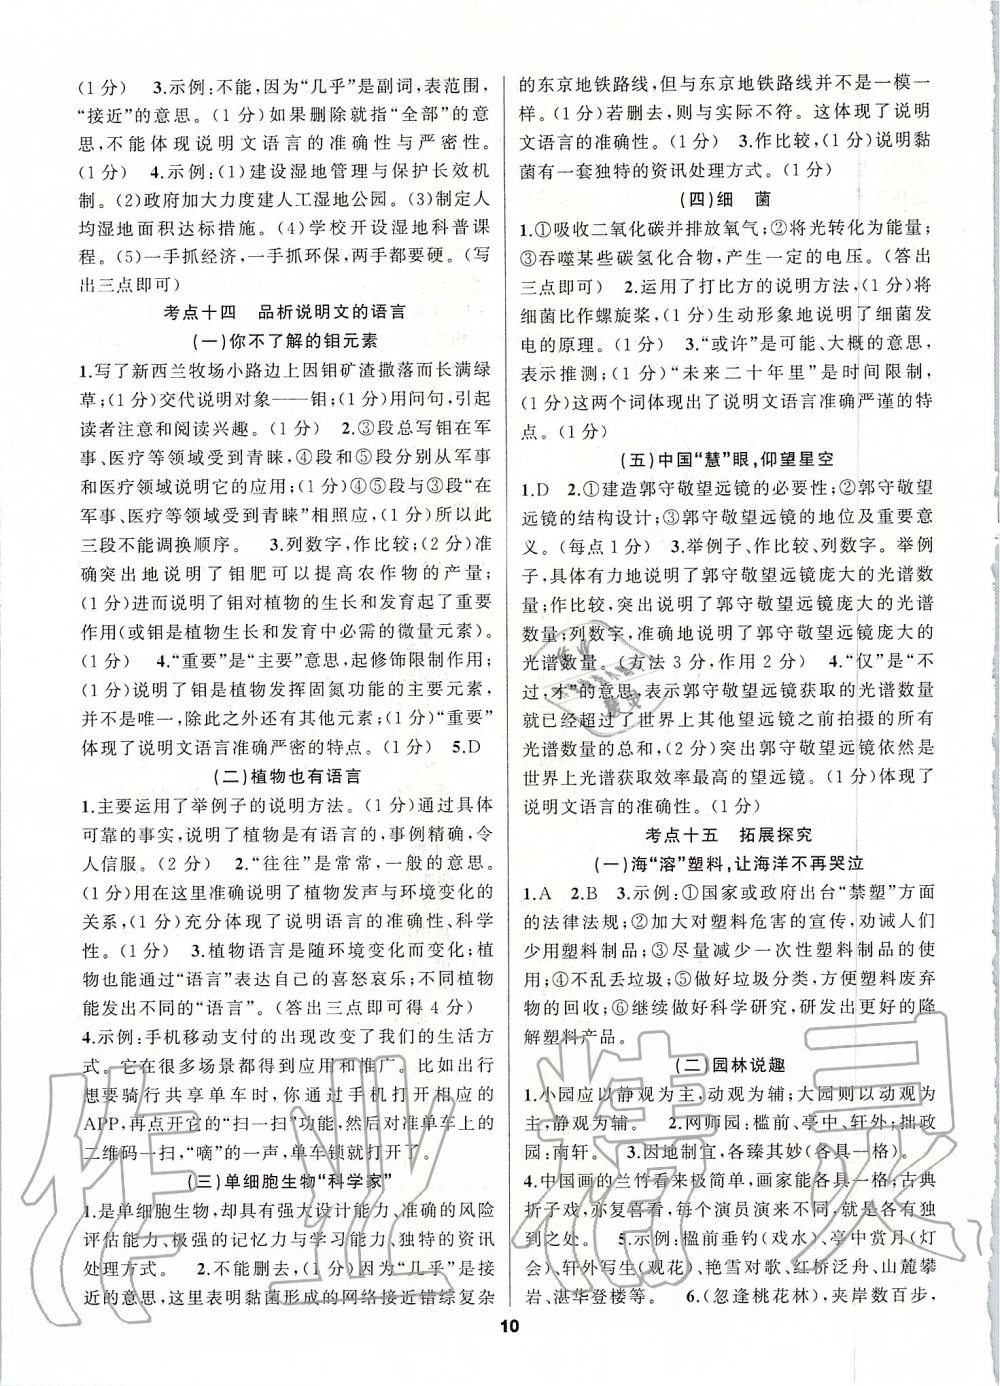 (1分)　3.示例:不能,因为“几乎”是副词,表范围,
“接近”的意思。(1分)如果删除就指“全部”的意
思,不能体现说明文语言的准确性与严密性。
(1分)　4.示例:(1)建设湿地管理与保护长效机
制。(2)政府加大力度建人工湿地公园。(3)制定人
均湿地面积达标措施。(4)学校开设湿地科普课
程。(5)一手抓经济,一手抓环保,两手都要硬。(写
出三点即可)
考点十四　品析说明文的语言
(一)你不了解的钼元素
1.写了新西兰牧场小路边上因钼矿渣撒落而长满绿
草;(1分)交代说明对象——钼;(1分)用问句,引起
读者注意和阅读兴趣。(1分)　2.③段总写钼在军
事、医疗等领域受到青睐,④段和⑤段分别从军事
和医疗领域说明它的应用;(1分)④⑤段与③段“在
军事、医疗等领域受到青睐”相照应,(1分)所以此
三段不能调换顺序。　3.列数字,作比较;(2分)准
确突出地说明了钼肥可以提高农作物的产量;
(1分)进而说明了钼对植物的生长和发育起了重要
作用(或钼是植物生长和发育中必需的微量元素)。
(1分)　4.“重要”是“主要”意思,起修饰限制作用;
(1分)说明了钼是植物发挥固氮功能的主要元素,
并不是唯一,除此之外还有其他元素;(1分)“重要”
体现了说明文语言准确严密的特点。(1分)　5.D
(二)植物也有语言
1.主要运用了举例子的说明方法。(1分)通过具体
可靠的事实,说明了植物是有语言的,事例精确,令
人信服。(2分)　2.“往往”是常常,一般的意思。
(1分)用在这里准确说明了植物发声与环境变化的
关系,(1分)充分体现了说明语言的准确性、科学
性。(1分)　3.植物语言是随环境变化而变化;植
物也能通过“语言”表达自己的喜怒哀乐;不同植物
能发出不同的“语言”。(答出三点即可得4分)
4.示例:手机移动支付的出现改变了我们的生活方
式。它在很多场景都得到应用和推广。比如出行
想要骑行共享单车时,你可以通过手机打开相应的
APP,再点开它的“扫一扫”功能,然后对准单车上的
二维码一扫,“嘀”的一声,单车锁就打开了。
(三)单细胞生物“科学家”
1.是单细胞生物,却具有强大设计能力、准确的风险
评估能力、极强的记忆力与学习能力、独特的资讯
处理方式。　2.不能删去,(1分)“几乎”是接近
接近的意思,这里表明黏菌形成的网络接近错综复杂
的东京地铁路线,但与东京地铁路线并不是一模一
样。(1分)若删去,则与实际不符。这体现了说明
文语言的准确性。(1分)　3.作比较,(1分)说明黏
菌有一套独特的资讯处理方式。(1分)
(四)细　菌
1.①吸收二氧化碳并排放氧气;②将光转化为能量;
③吞噬某些碳氢化合物,产生一定的电压。(答出
三点即可)　2.运用了打比方的说明方法,(1分)将
细菌比作螺旋桨,(1分)生动形象地说明了细菌发
电的原理。(1分)　3.“或许”是可能、大概的意思,
表示推测;(1分)“未来二十年里”是时间限制,
(1分)这两个词体现出了说明文语言准确严谨的特
点。(1分)
(五)中国“慧”眼,仰望星空
1.D　2.①建造郭守敬望远镜的必要性;②郭守敬望
远镜的结构设计;③郭守敬望远镜的地位及重要意
义。(每点1分)　3.举例子、作比较、列数字。举例
子,具体有力地说明了郭守敬望远镜庞大的光谱
数量;作比较,突出说明了郭守敬望远镜庞大的光谱
数量;列数字,准确地说明了郭守敬望远镜庞大的
光谱数量。(方法3分,作用1分)　4.“仅”是“不
过,才”的意思,表示郭守敬望远镜获取的光谱数量
就已经超过了世界上其他望远镜之前拍摄的所有
光谱数量的总和,(2分)突出郭守敬望远镜依然是
世界上光谱获取效率最高的望远镜。(1分)体现了
说明文语言的准确性。(1分)
考点十五　拓展探究
(一)海“溶”塑料,让海洋不再哭泣
1.A　2.B　3.示例:①国家或政府出台“禁塑”方面
的法律法规;②加大对塑料危害的宣传,劝诫人们
少用塑料制品;③尽量减少一次性塑料制品的使
用;④不乱丢垃圾;⑤做好垃圾分类,方便塑料废弃
物的回收;⑥继续做好科学研究,研发出更好的降
解塑料产品。
(二)园林说趣
1.小园应以静观为主,动观为辅;大园则以动观为
主,静观为辅。　2.网师园:槛前、亭中、轩外;拙政
园:南轩。　3.因地制宜,各臻其妙(各具一格)。
4.中国画的兰竹看来极简单,画家能各具一格;古典
折子戏,亦复喜看,每个演员演来不同,就是各有独
到之处。　5.示例:槛前垂钓(戏水)、亭中赏月(灯
会)、轩外写生(观花)、艳雪对歌、红桥泛舟、山麓攀
岩、湛华登楼等。　6.(忽逢桃花林),夹岸数百步,
10
作业精灵